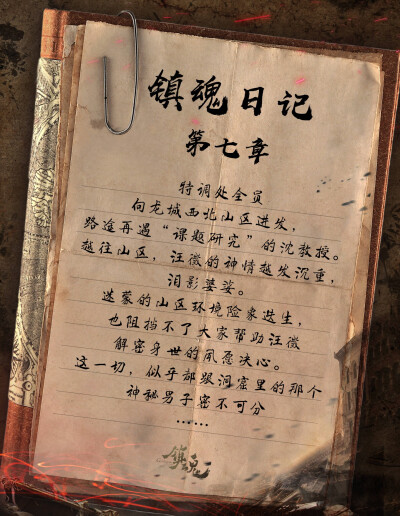 镇魂日记
第七章
特调处全员
向龙城西北山区进发，
路途再遇“课题研究”的沈教授。
越往山区，汪徵的神情越发沉重，
泪影婆娑。
迷蒙的山区环境险象迭生，
也阻挡不了大家帮助汪徵
解密身世的夙愿决心。
这一切，似乎都跟洞窟里的那个
神秘男子密不可分
……
镇魂